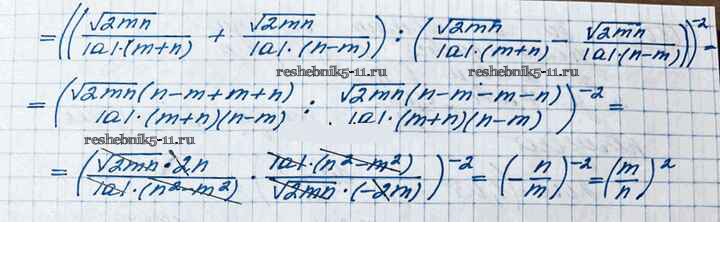 = ((√2mn / |a|·(m+n) + √2mn / |a|·(n-m)) : (√2mn / |a|·(m+n) - √2mn / |a|·(n-m)))⁻² =
reshebnik5-11.ru reshebnik5-11.ru
= (√2mn(n-m+m+n) / |a|·(m+n)(n-m) : √2mn(n-m-m-n) / |a|·(m+n)(n-m))⁻² =
reshebnik5-11.ru
= (√2mn·2n / |a|·(n²-m²) · |a|·(n²-m²) / √2mn·(-2m))⁻² = (-n/m)⁻² = (m/n)²